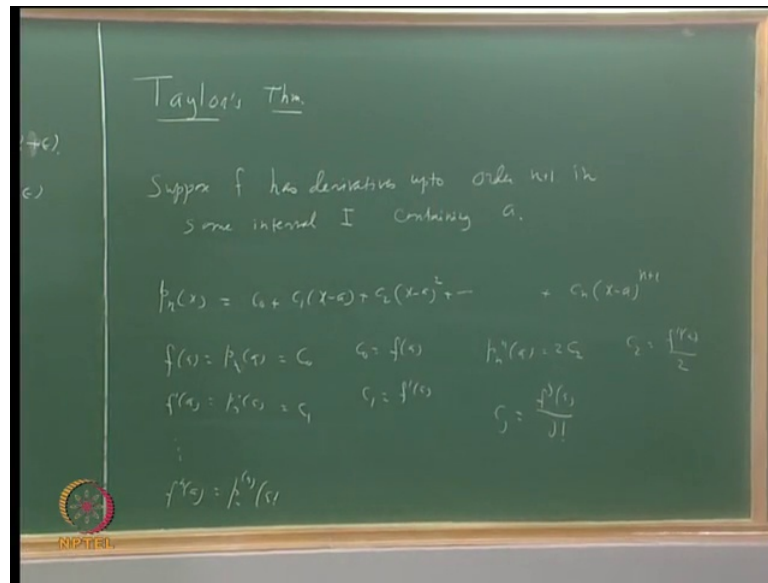 !+ε).
ε)
Taylor's Thm.
Suppose f has derivatives upto order n+1 in
some interval I containing a.
pₙ(x) = c₀ + c₁(x-a) + c₂(x-a)² + -- + cₙ(x-a)ⁿ⁺¹
f(a) = pₙ(a) = c₀ c₀ = f(a) pₙ"(a) = 2c₂ c₂ = f"(a)/2
f'(a) = pₙ'(a) = c₁ c₁ = f'(a) cⱼ = fʲ(a)/j!
⋮
NPTEL